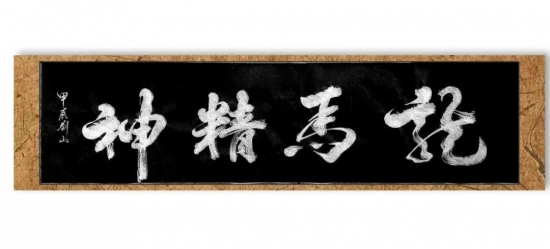 龍馬精神
甲辰劉山